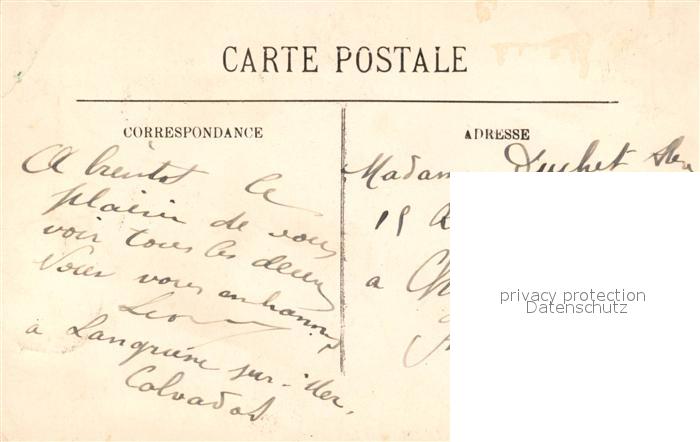 CARTE POSTALE
CORRESPONDANCE
A bientot le
plaisir de vous
voir tous les deux
Nous vous embrassons
Leon
a Langrune sur-Mer,
Calvados
ADRESSE
Madame Duchet
15
a Ch
privacy protection
Datenschutz